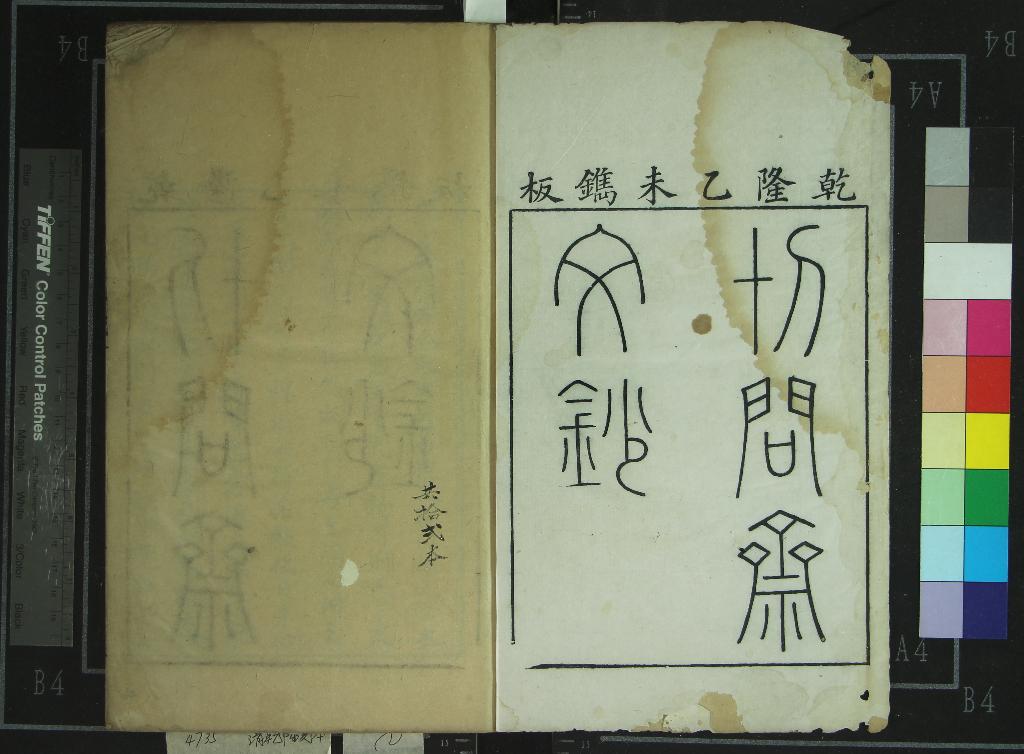 乾隆乙未鐫板
切問齋
文鈔
共拾弍本
TIFFEN Color Control Patches
Blue
Cyan
Green
Yellow
Red
Magenta
White
3/Color
Black
B4
B4
A4
A4
B4
B4